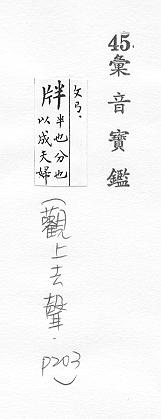 45.彙音寶鑑
ㄆㄢˋ
牉 半也分也
以成夫婦
(觀上去聲.
P203)